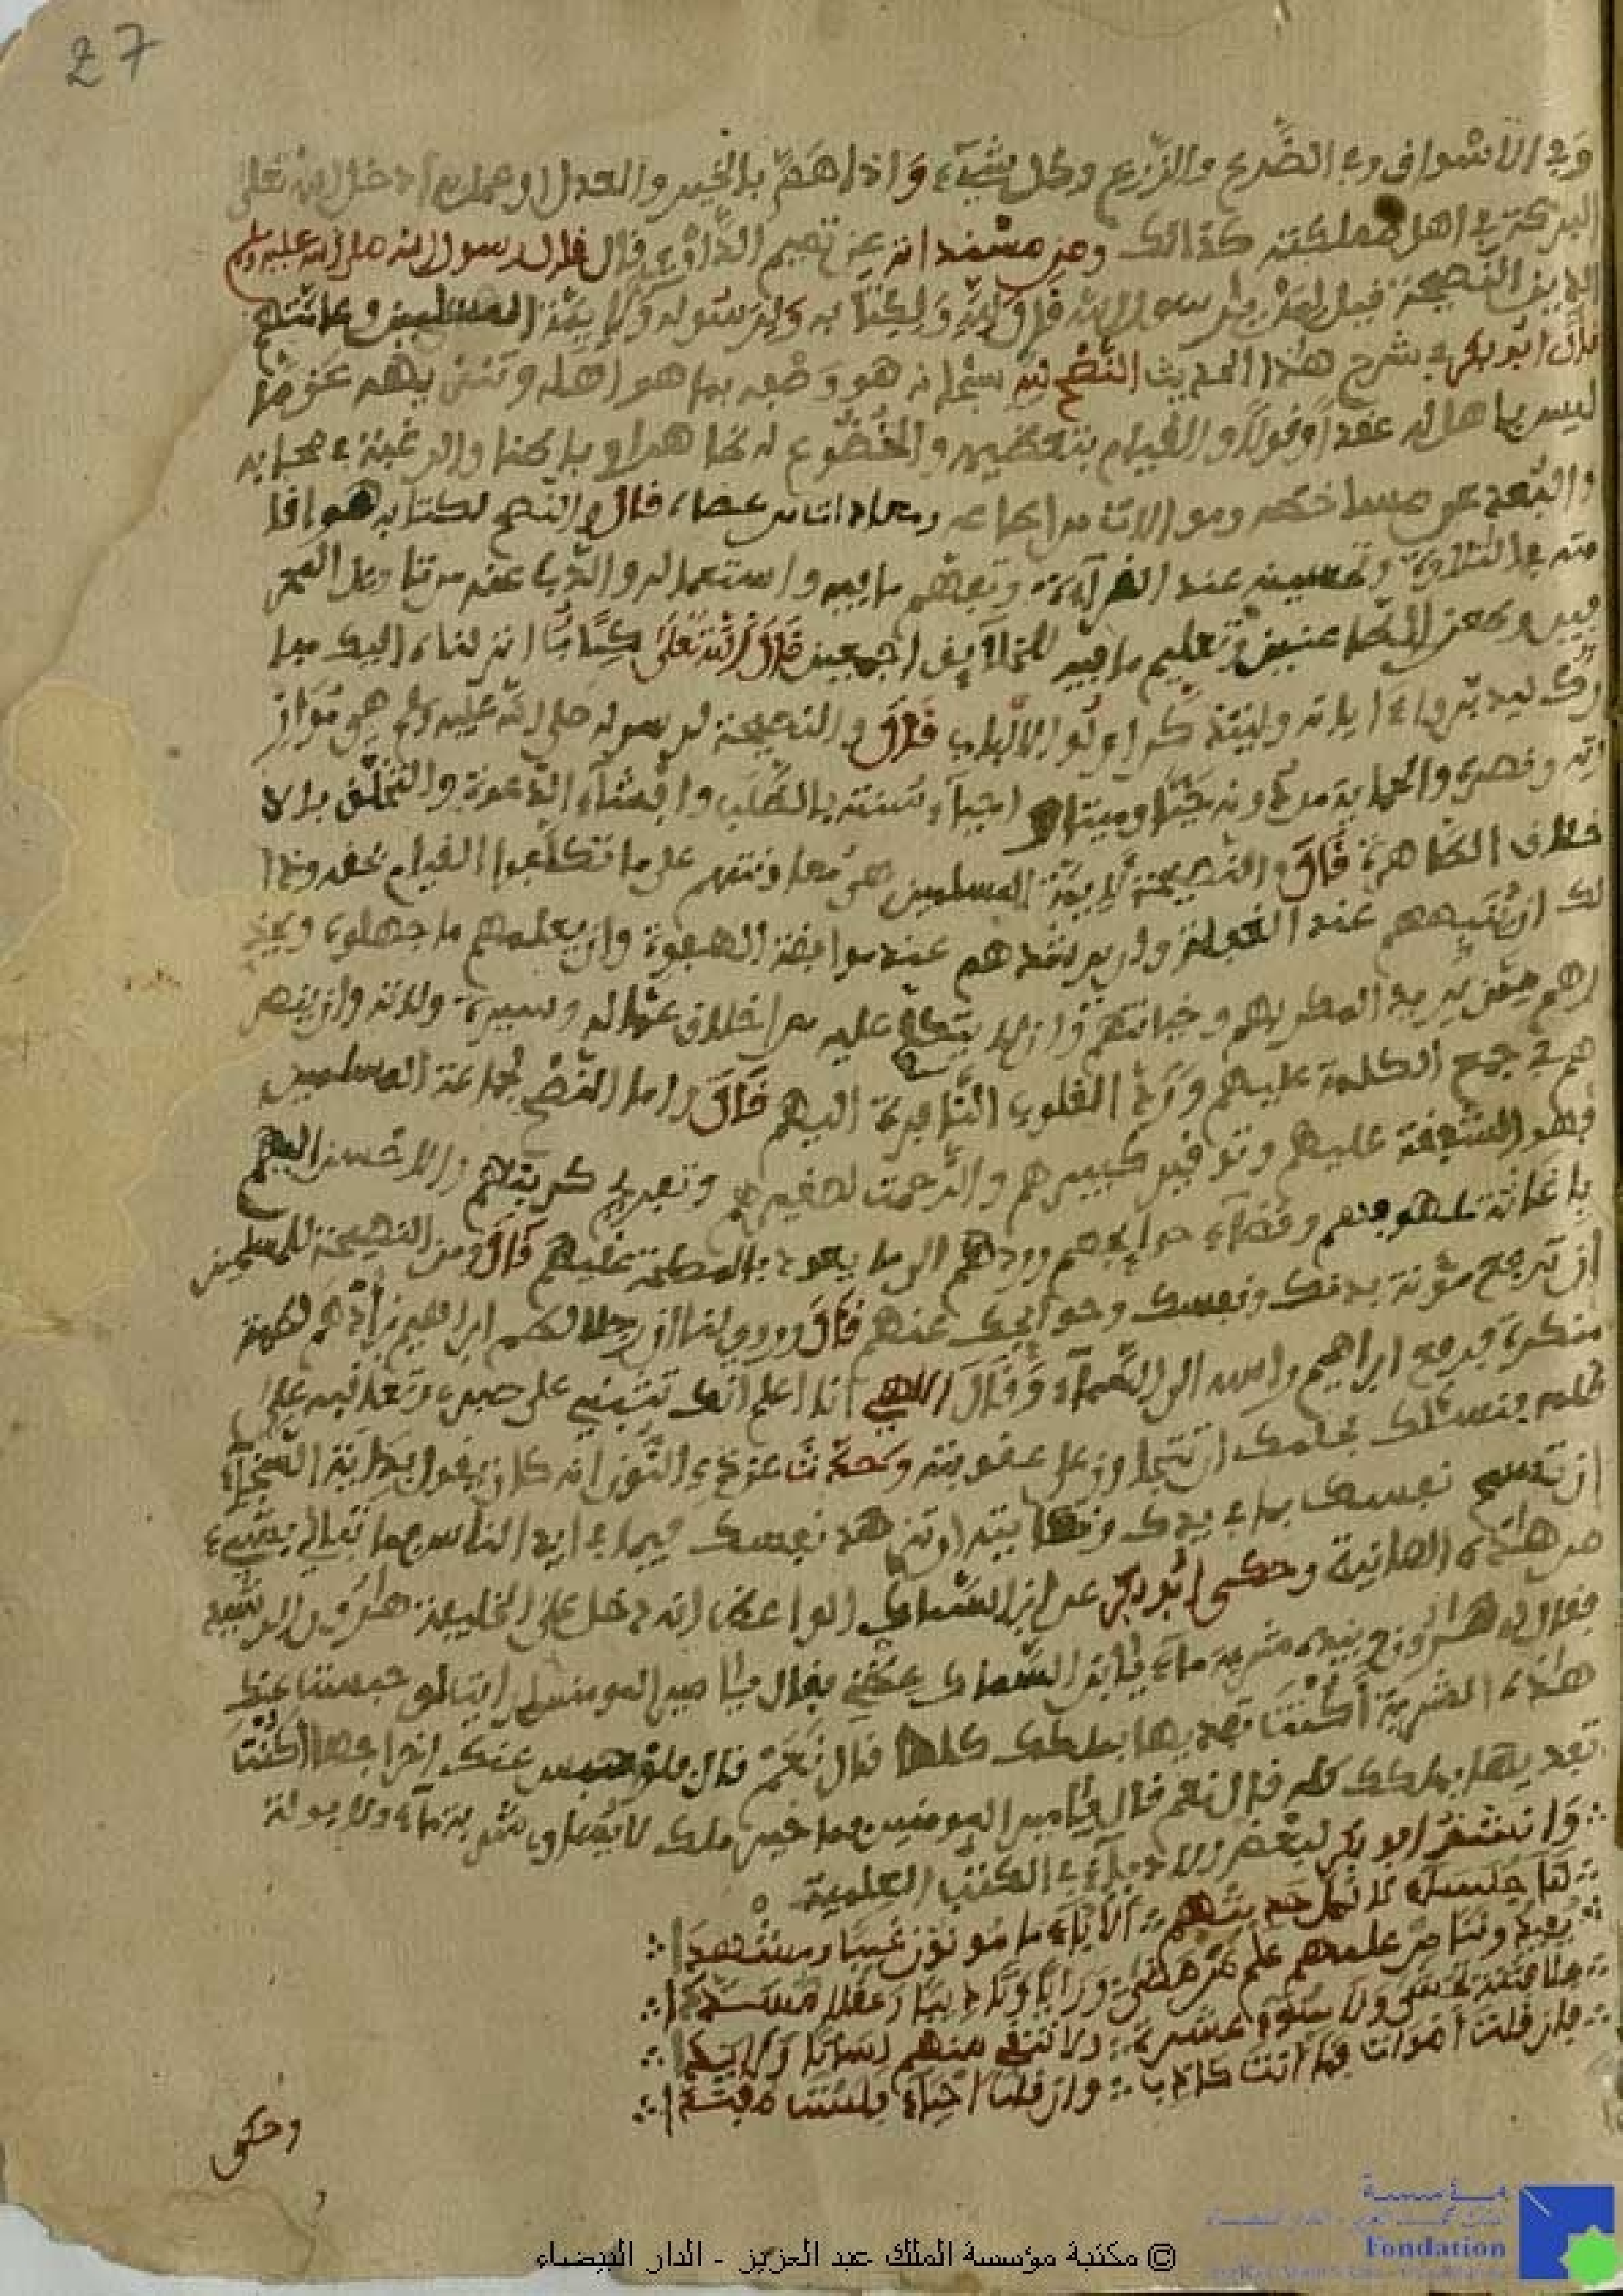 27
وفي الاسواق وفي الضرع والزرع وكل شيء واذا هم بالخير والعدل او عمل به ادخل الله تعلى
البركة في اهل مملكته كذالك ومن مسنداته عن تميم الداري قال قال رسول الله صلى الله عليه وسلم
الدين النصيحة قيل لمن يا رسول الله قال لله ولكتابه ولرسوله ولايمة المسلمين وعامتهم
قال ابو بكر في شرح هذا الحديث النصح لله سبحانه هو وصفه بما هو اهله وتنزيهه عن ما
ليس باهل له عقدا وقولا والقيام بتعظيمه والخضوع له ظاهرا وباطنا والرغبة في محابه
والبعد عن مساخطه وموالاة من اطاعه ومعاداة من عصاه قال والنصح لكتابه هو اقا
مته في التلاوة وتحسينه عند القراءة وتفهم ما فيه واستعماله والذب عنه من تاويل المحر
فين وطعن الطاعنين وتعليم ما فيه للخلايق اجمعين قال الله تعلى كتاب انزلناه اليك مبا
رك ليدبروا ءاياته وليتذكر اولوا الالباب قال والنصيحة لرسوله صلى الله عليه وسلم هي مواز
رته ونصرة والحماية من دونه حيا وميتا واحياء سنته بالطلب وافشاء الدعوة والتخلق بالا
خلاق الطاهرة قال والنصيحة لايمة المسلمين هي معاونتهم على ما تكلفوا القيام به وذا
لك ان تنبههم عند الغفلة وان يرشدهم عند مواقعة الهفوة وان يعلمهم ما جهلوه ويحذ
رهم ممن يريد المكر بهم
هم في جمع الكلمة عليهم ورد القلوب النافرة اليهم قال واما النصح لجماعة المسلمين
فهو الشفقة عليهم وتوقير كبيرهم والرحمة لصغيرهم وتفريج كربتهم
وقضاء حوايجهم وردهم الى ما يعود بالمصلحة عليهم قال ومن النصيحة للمسلمين
ان ترفع مؤنة بدنك ونفسك وحوايجك عنهم قال وروي لنا ان رجلا لطم ابراهيم بن ادهم لطمة
منكرة فرفع ابراهيم راسه الى السماء وقال الاهي انا اعلم انك تثيبني على صبري وتعاقبه على
ظلمه فنسئلك بحلمك ان تتجاوز عن عقوبته وحدثنا عن ذي النون انه كان يقول بداية السخاء
ان تسمح نفسك بما في يدك ونهايته ان تزهد نفسك فيما في ايد الناس
من هذه الفانية وحكى ابو بكر عن ابن السماك الواعظ انه دخل على الخليفة هارون الرشيد
فقال له هارون وفي يده شربة ماء يا ابن السماك عظني فقال يا امير المومنين ارايت لو حبست عنك
هذه الشربة أكنت تفديها بملكك كلها قال نعم قال فلو حبس عنك اخراجها أكنت
تفديها بملكك كله قال نعم قال يا امير المومنين فما خير ملك لا يساوي شربة ماء ولا بولة
وانشد ابو بكر لبعض الادباء في الكتب العلمية
لنا جلساء لا نمل حديثهم الاباء مامونون غيبا ومشهدا
يفيدوننا من علمهم علم من مضى ورايا وتاديبا وعقلا مسددا
فلا فتنة نخشى ولا سوء عشرة ولا نتقي منهم لسانا ولا يدا
فان قلت اموات فما انت كاذب وان قلت احياء فلست مفندا
وحكى
مؤسسة
Fondation
© مكتبة مؤسسة الملك عبد العزيز - الدار البيضاء